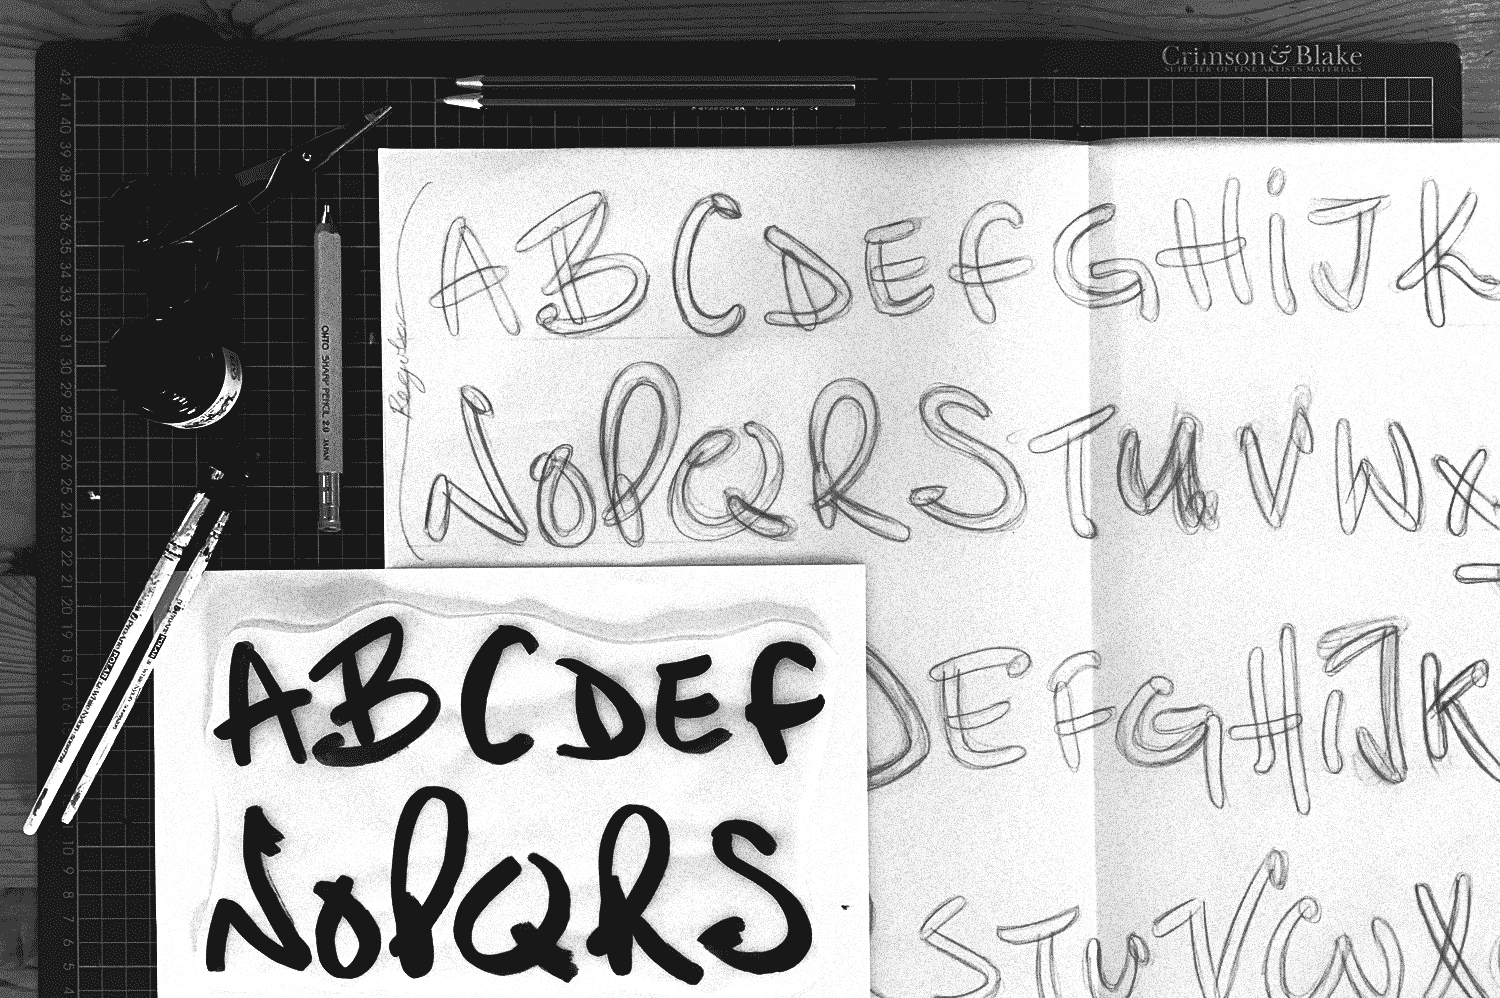 Crimson & Blake
SUPPLIER OF FINE ARTISTS MATERIALS
42
41
40
39
38
37
36
35
34
33
32
31
30
29
28
27
26
25
24
23
22
21
20
19
18
17
16
11
10
9
8
7
6
5
4
STAEDTLER
OHTO SHARP PENCIL 2.0 JAPAN
Regular
A B C D E F G H i J K
N o P Q R S T u V W X
D E F G H i J K
S T u V W X
A B C D E F
N o P Q R S